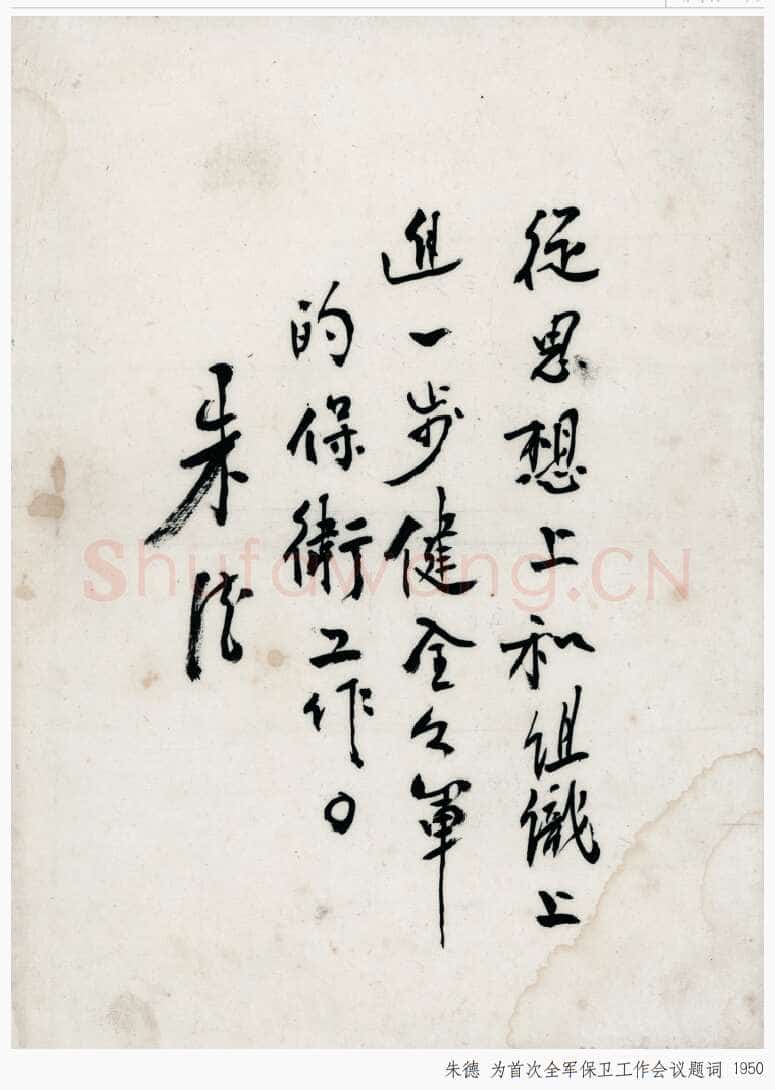 從思想上和組織上
進一步健全々軍
的保衛工作。
朱德
Shufawang.CN
朱德 为首次全军保卫工作会议题词 1950